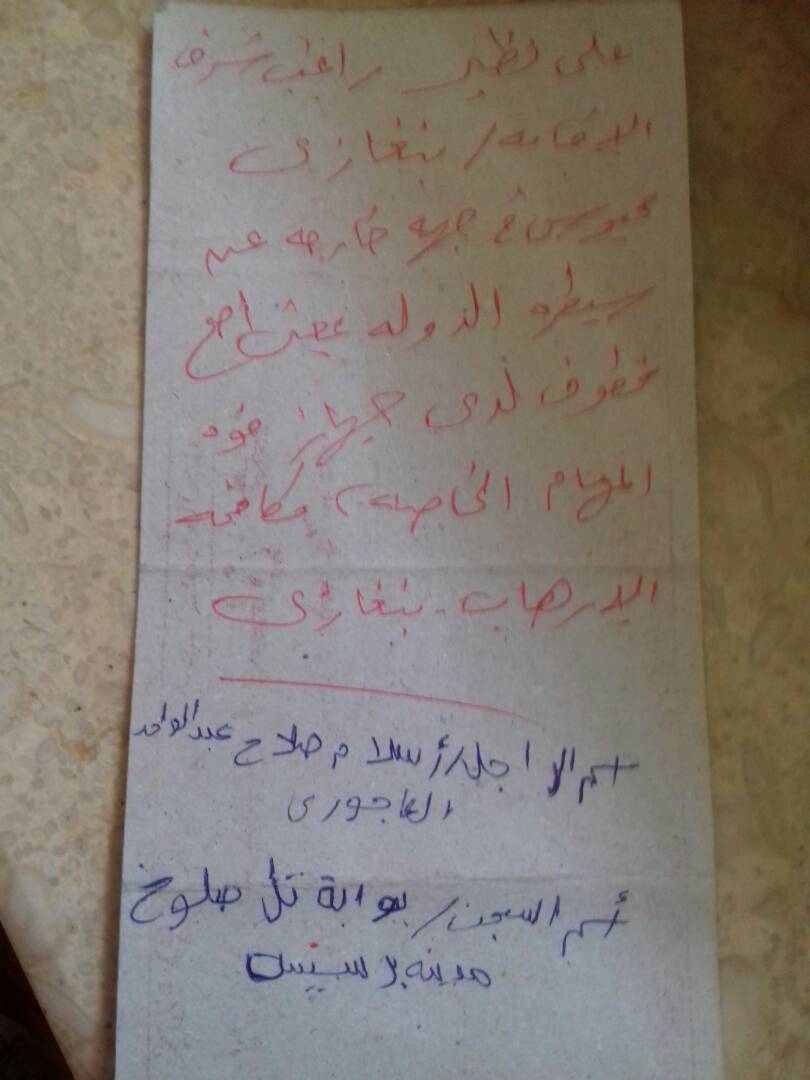 على نظير راغب شرف
الاقامه / بنغازى
محبوس فى جهه خارجه عن
سيطره الدوله
مخطوف لدى جهاز قوه
المهام الخاصه ومكافحه
الارهاب - بنغازى
اسم الراجل / أسلام صلاح عبدالواحد
العاجورى
أسم السجن / بوابة تل صلوخ
مدينه برسيس